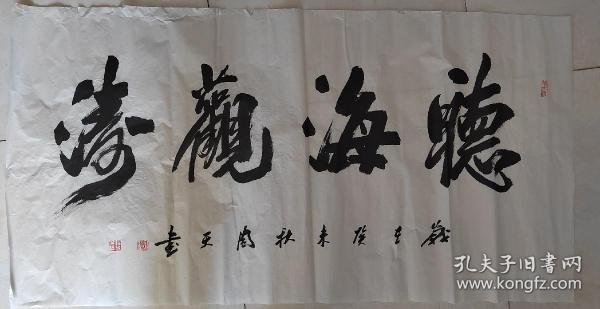 聽海觀濤
歲在癸未秋閏天書
孔夫子旧书网
www.kongfz.com